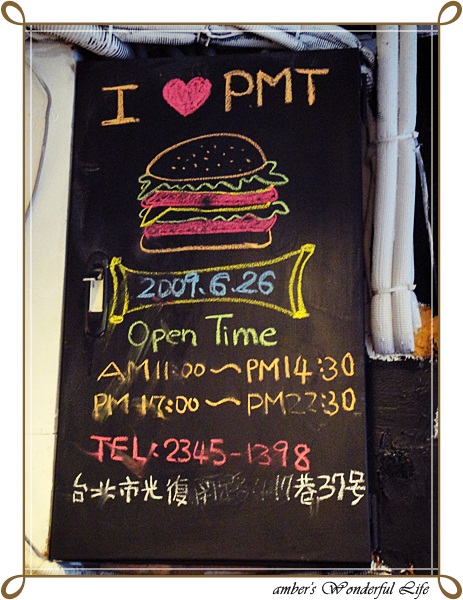 I ♥ PMT
2009.6.26
Open Time
AM 11:00 ~ PM 14:30
PM 17:00 ~ PM 22:30
TEL: 2345-1398
台北市光復 巷37號
amber's Wonderful Life